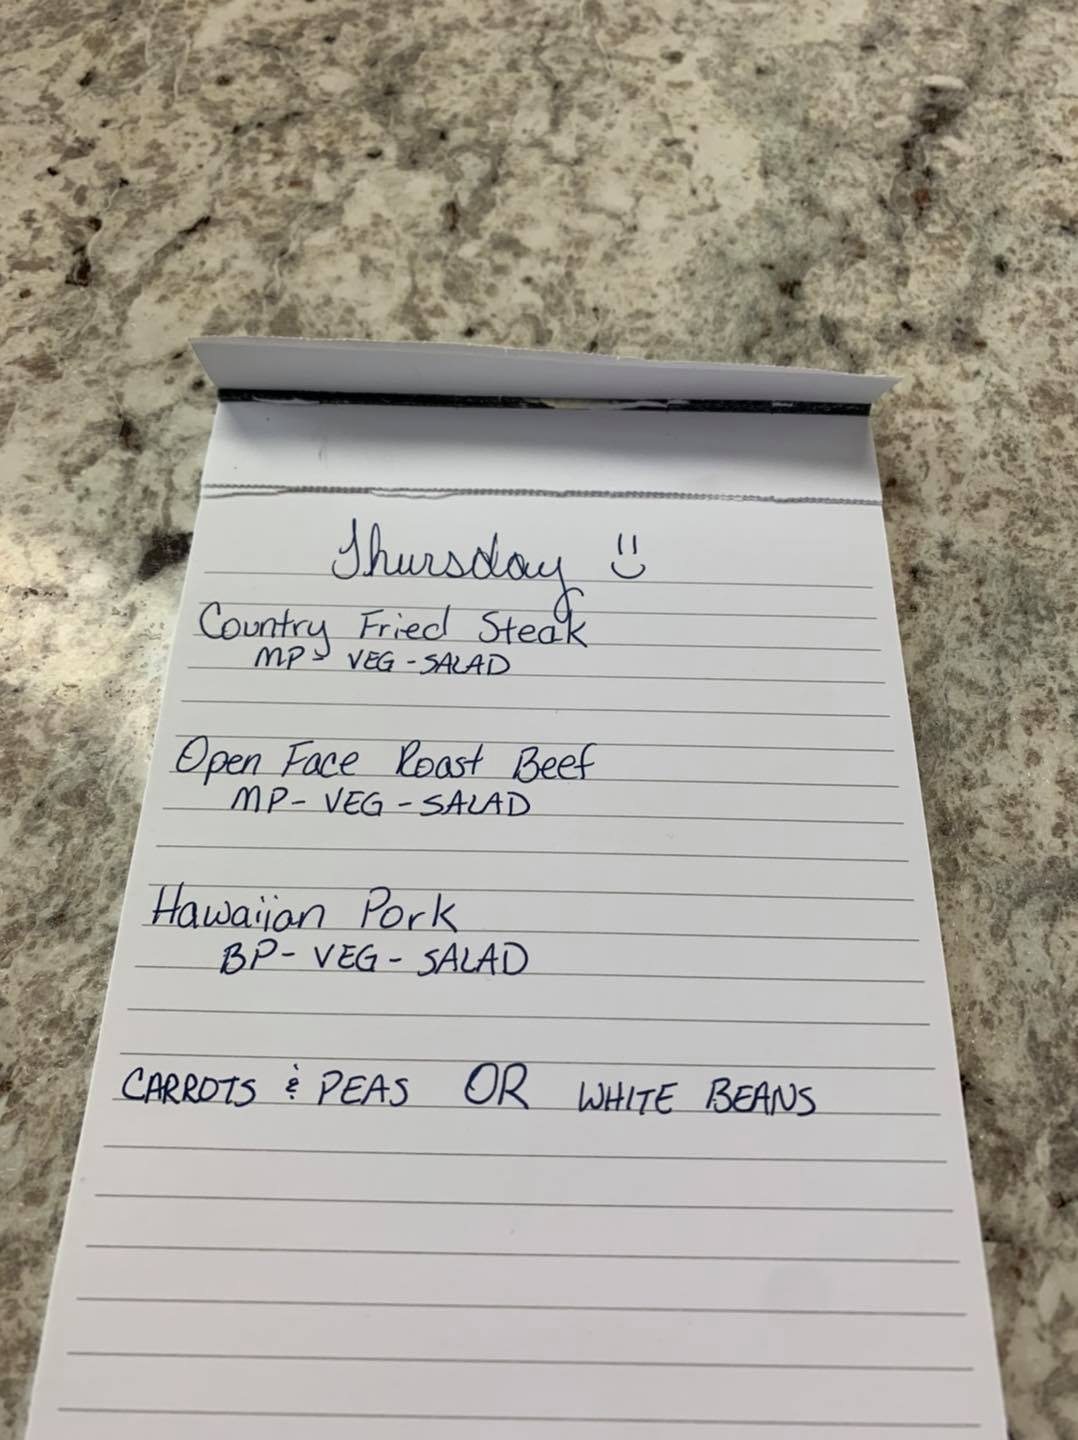 Thursday
Country Fried Steak
MP - VEG - SALAD
Open Face Roast Beef
MP - VEG - SALAD
Hawaiian Pork
BP - VEG - SALAD
CARROTS & PEAS OR WHITE BEANS